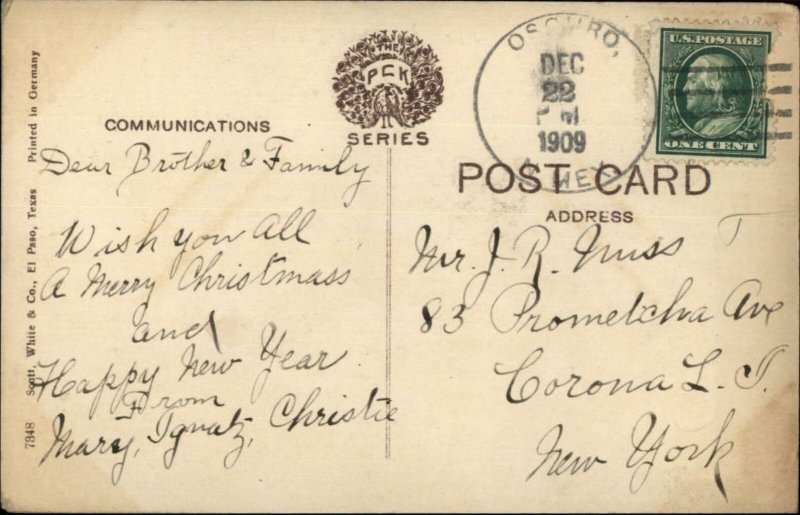 7348 Scott, White & Co., El Paso, Texas Printed in Germany
COMMUNICATIONS
THE
PCK
SERIES
Dear Brother & Family
Wish you All
A Merry Christmass
and
Happy New Year
From
Mary, Ignatz, Christie
OSCURO,
DEC
22
P M
1909
N. MEX.
U.S. POSTAGE
ONE CENT
POST CARD
ADDRESS
Mr. J. R. Nuss
83 Prometcha Ave
Corona L. I.
New York